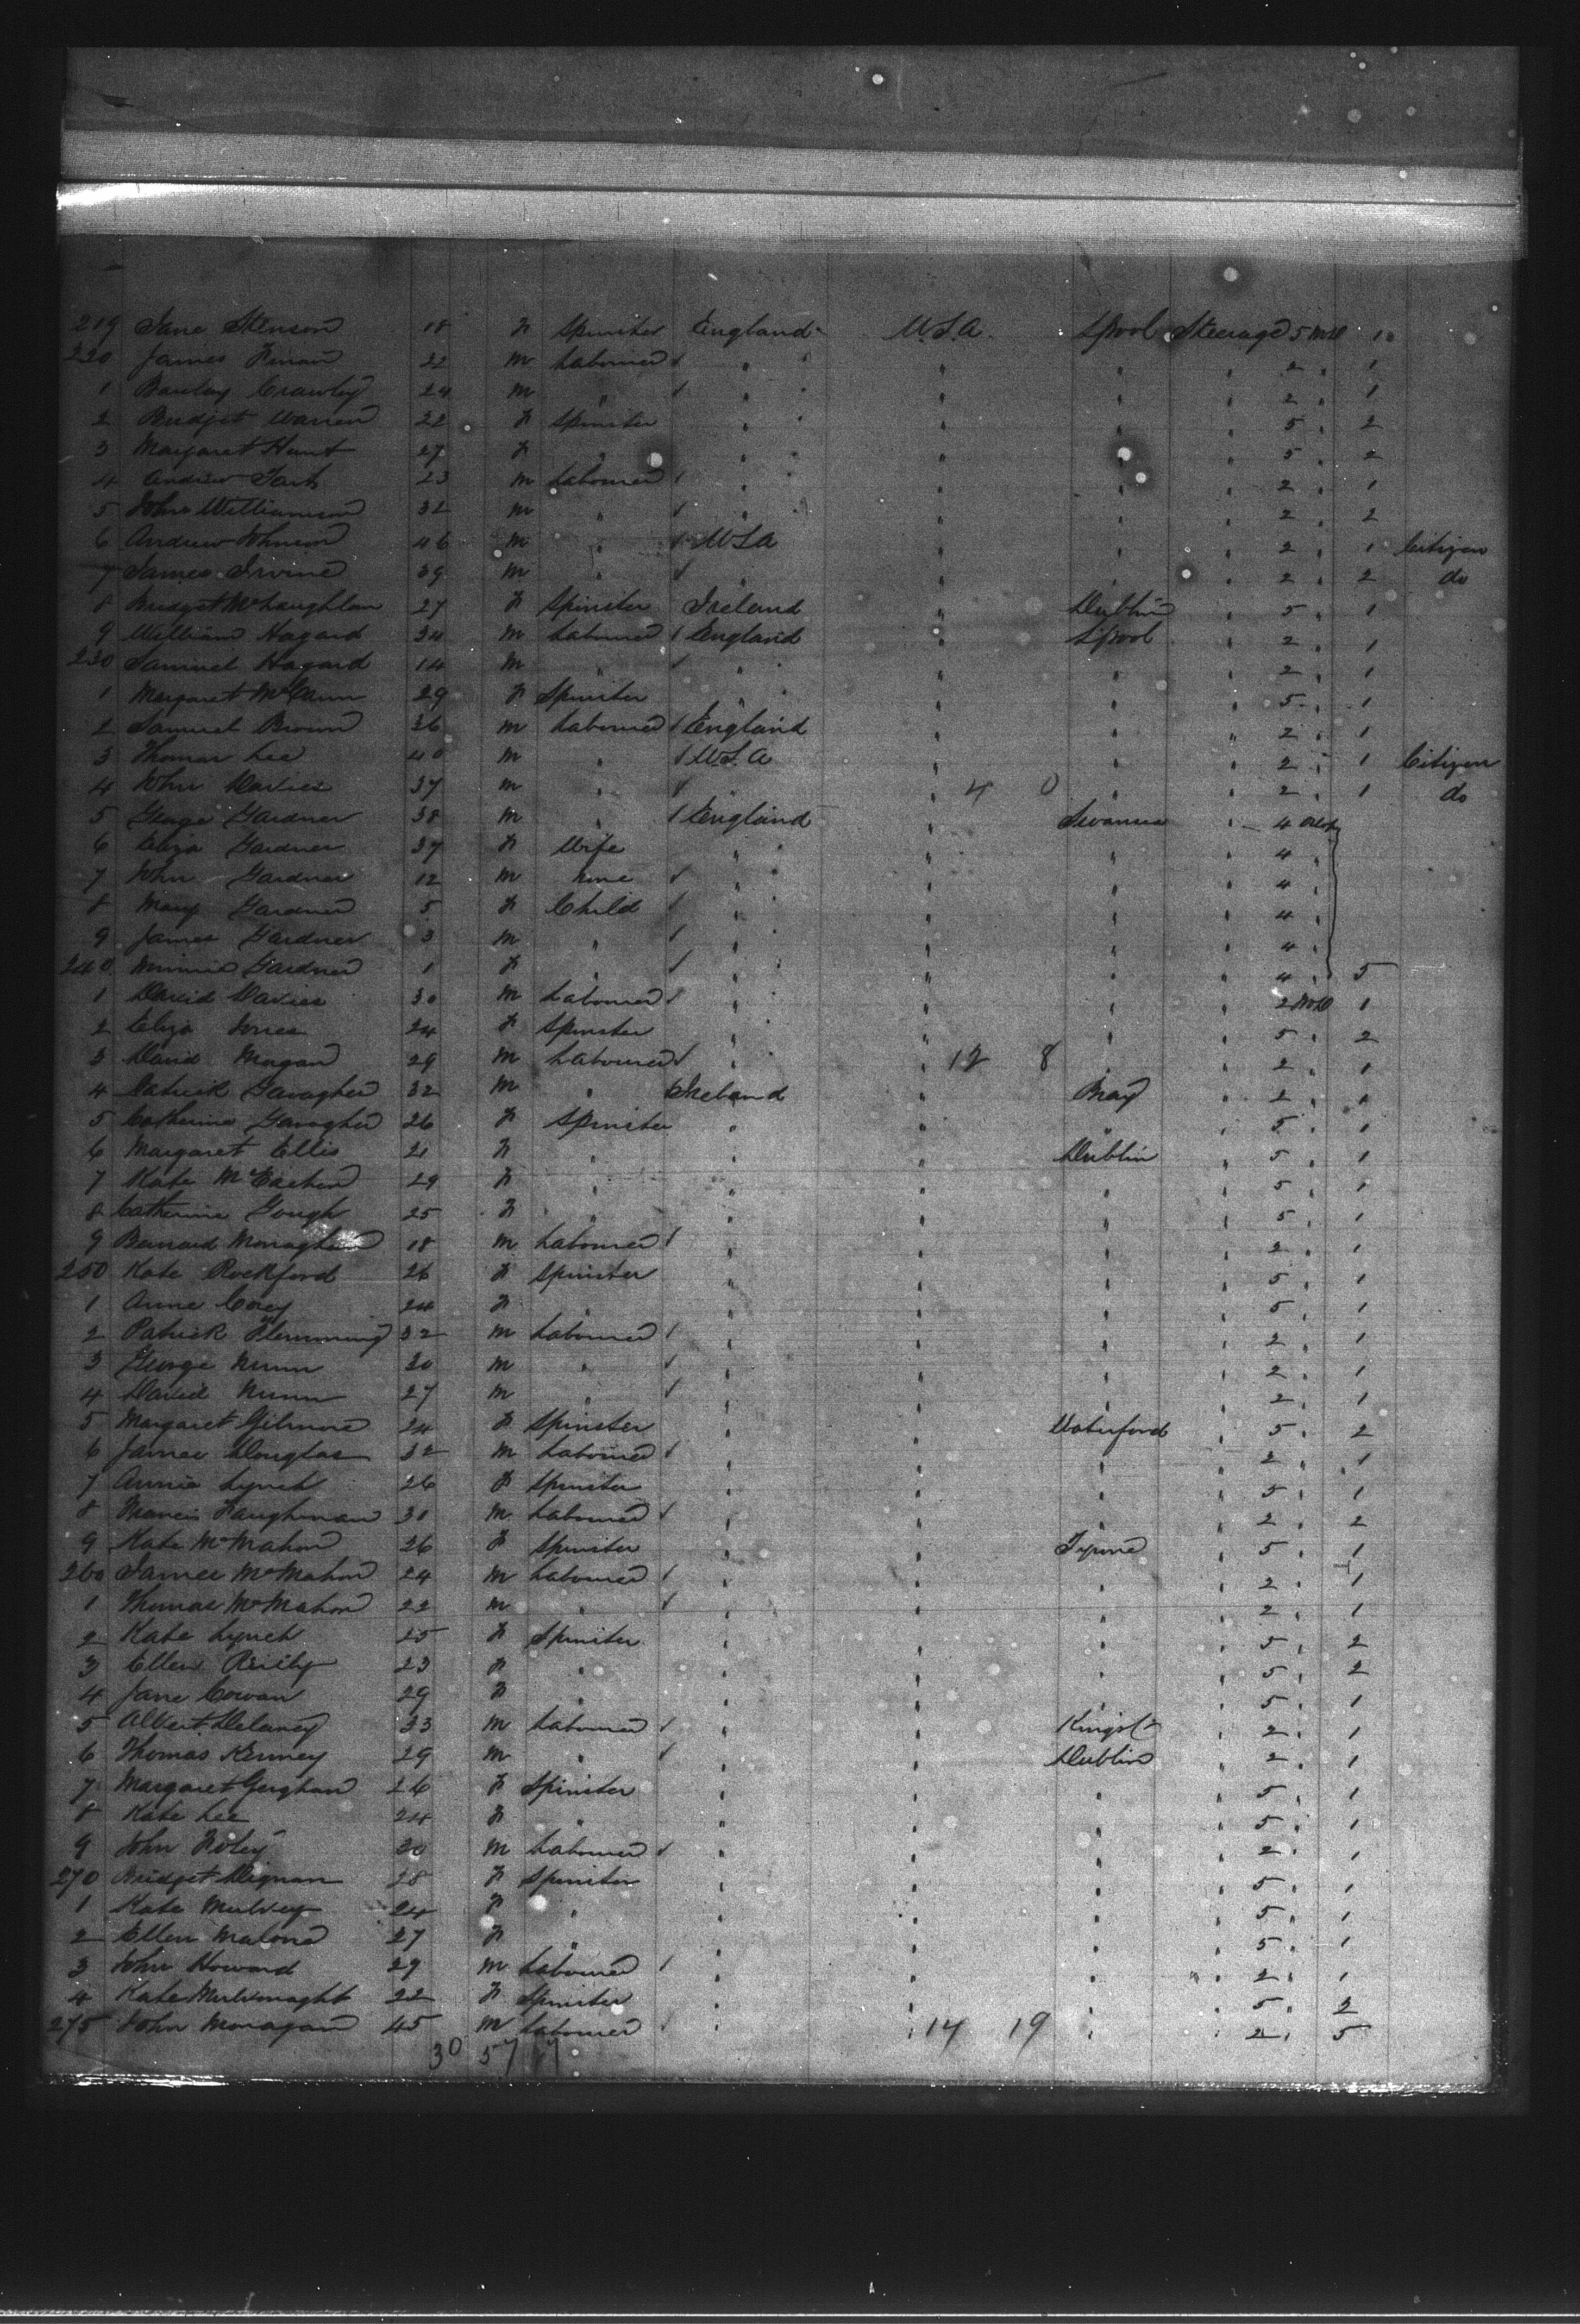 219 Jane Stenson 18 F Spinster England U.S.A. Lpool Steerage 5 Mid 1
220 James 22 M Labourer / " " " " 2 " 1
1 Crawley 24 M " / " " " " 2 " 1
2 Bridget Warren 22 F Spinster " " " " 5 " 2
3 Margaret Hunt 27 F " " " " " 5 " 2
4 Andrew 23 M Labourer / " " " " 2 " 1
5 John Williamson 32 M " / " " " " 2 " 2
6 Andrew Johnson 46 M " / USA " " " 2 " 1 Citizen
7 James Irvine 39 M " / " " " " 2 " 2 do
8 Bridget McLaughlan 27 F Spinster Ireland " Dublin " 5 " 1
9 William Hagard 34 M Labourer / England " Lpool " 2 " 1
230 Samuel Hagard 14 M " / " " " " 2 " 1
1 Margaret McCann 29 F Spinster " " " " 5 " 1
2 Samuel Brown 36 M Labourer / England " " " 2 " 1
3 Thomas Lee 40 M " / USA " " " 2 " 1 Citizen
4 John Davies 37 M " / " " 4 0 " " 2 " 1 do
5 George Gardner 38 M " / England " Swansea " 4
6 Eliza Gardner 37 F Wife " " " " 4 "
7 John Gardner 12 M none / " " " " 4 "
8 Mary Gardner 5 F Child / " " " " 4 "
9 James Gardner 3 M " / " " " " 4 "
240 Minnie Gardner 1 F " / " " " " 4 " 5
1 David Davies 30 M Labourer / " " " " 2 Mid 1
2 Eliza Jones 24 F Spinster " " " " 5 " 2
3 David Morgan 29 M Labourer / " " 12 8 " " 2 " 1
4 Patrick Gavagher 32 M " / Ireland " Bray " 2 " 1
5 Catherine Gavagher 26 F Spinster " " " " 5 " 1
6 Margaret Ellis 21 F " " " Dublin " 5 " 1
7 Kate 29 F " " " " " 5 " 1
8 Catherine Gough 25 F " " " " " 5 " 1
9 Bernard Monaghan 18 M Labourer / " " " " 2 " 1
250 Kate Rockford 26 F Spinster " " " " 5 " 1
1 Anne Corey 24 F " " " " " 5 " 1
2 Patrick Flemming 32 M Labourer / " " " " 2 " 1
3 George Nunn 30 M " / " " " " 2 " 1
4 David Nunn 27 M " / " " " " 2 " 1
5 Margaret Gilmore 24 F Spinster " " Waterford " 5 " 2
6 James Douglas 32 M Labourer / " " " " 2 " 1
7 Annie Lynch 26 F Spinster " " " " 5 " 1
8 Francis Faughnan 30 M Labourer / " " " " 2 " 2
9 Kate McMahon 26 F Spinster " " Tyrone " 5 " 1
260 James McMahon 24 M Labourer / " " " " 2 " 1
1 Thomas McMahon 22 M " / " " " " 2 " 1
2 Kate Lynch 25 F Spinster " " " " 5 " 2
3 Ellen Reilly 23 F " " " " " 5 " 2
4 Jane Cowan 29 F " " " " " 5 " 1
5 Albert Delaney 33 M Labourer / " " " 2 " 1
6 Thomas Kenney 29 M " / " " Dublin " 2 " 1
7 Margaret Geoghan 26 F Spinster " " " " 5 " 1
8 Kate Lee 24 F " " " " " 5 " 1
9 John Foley 30 M Labourer / " " " " 2 " 1
270 Bridget Dignan 28 F Spinster " " " " 5 " 1
1 Kate Mulvey 24 F " " " " " 5 " 1
2 Ellen Malone 27 F " " " " " 5 " 1
3 John Howard 29 M Labourer / " " " " 2 " 1
4 Kate 22 F Spinster " " " " 5 " 2
275 John Monagan 45 M Labourer / " " 14 19 " " 2 " 5
30 57